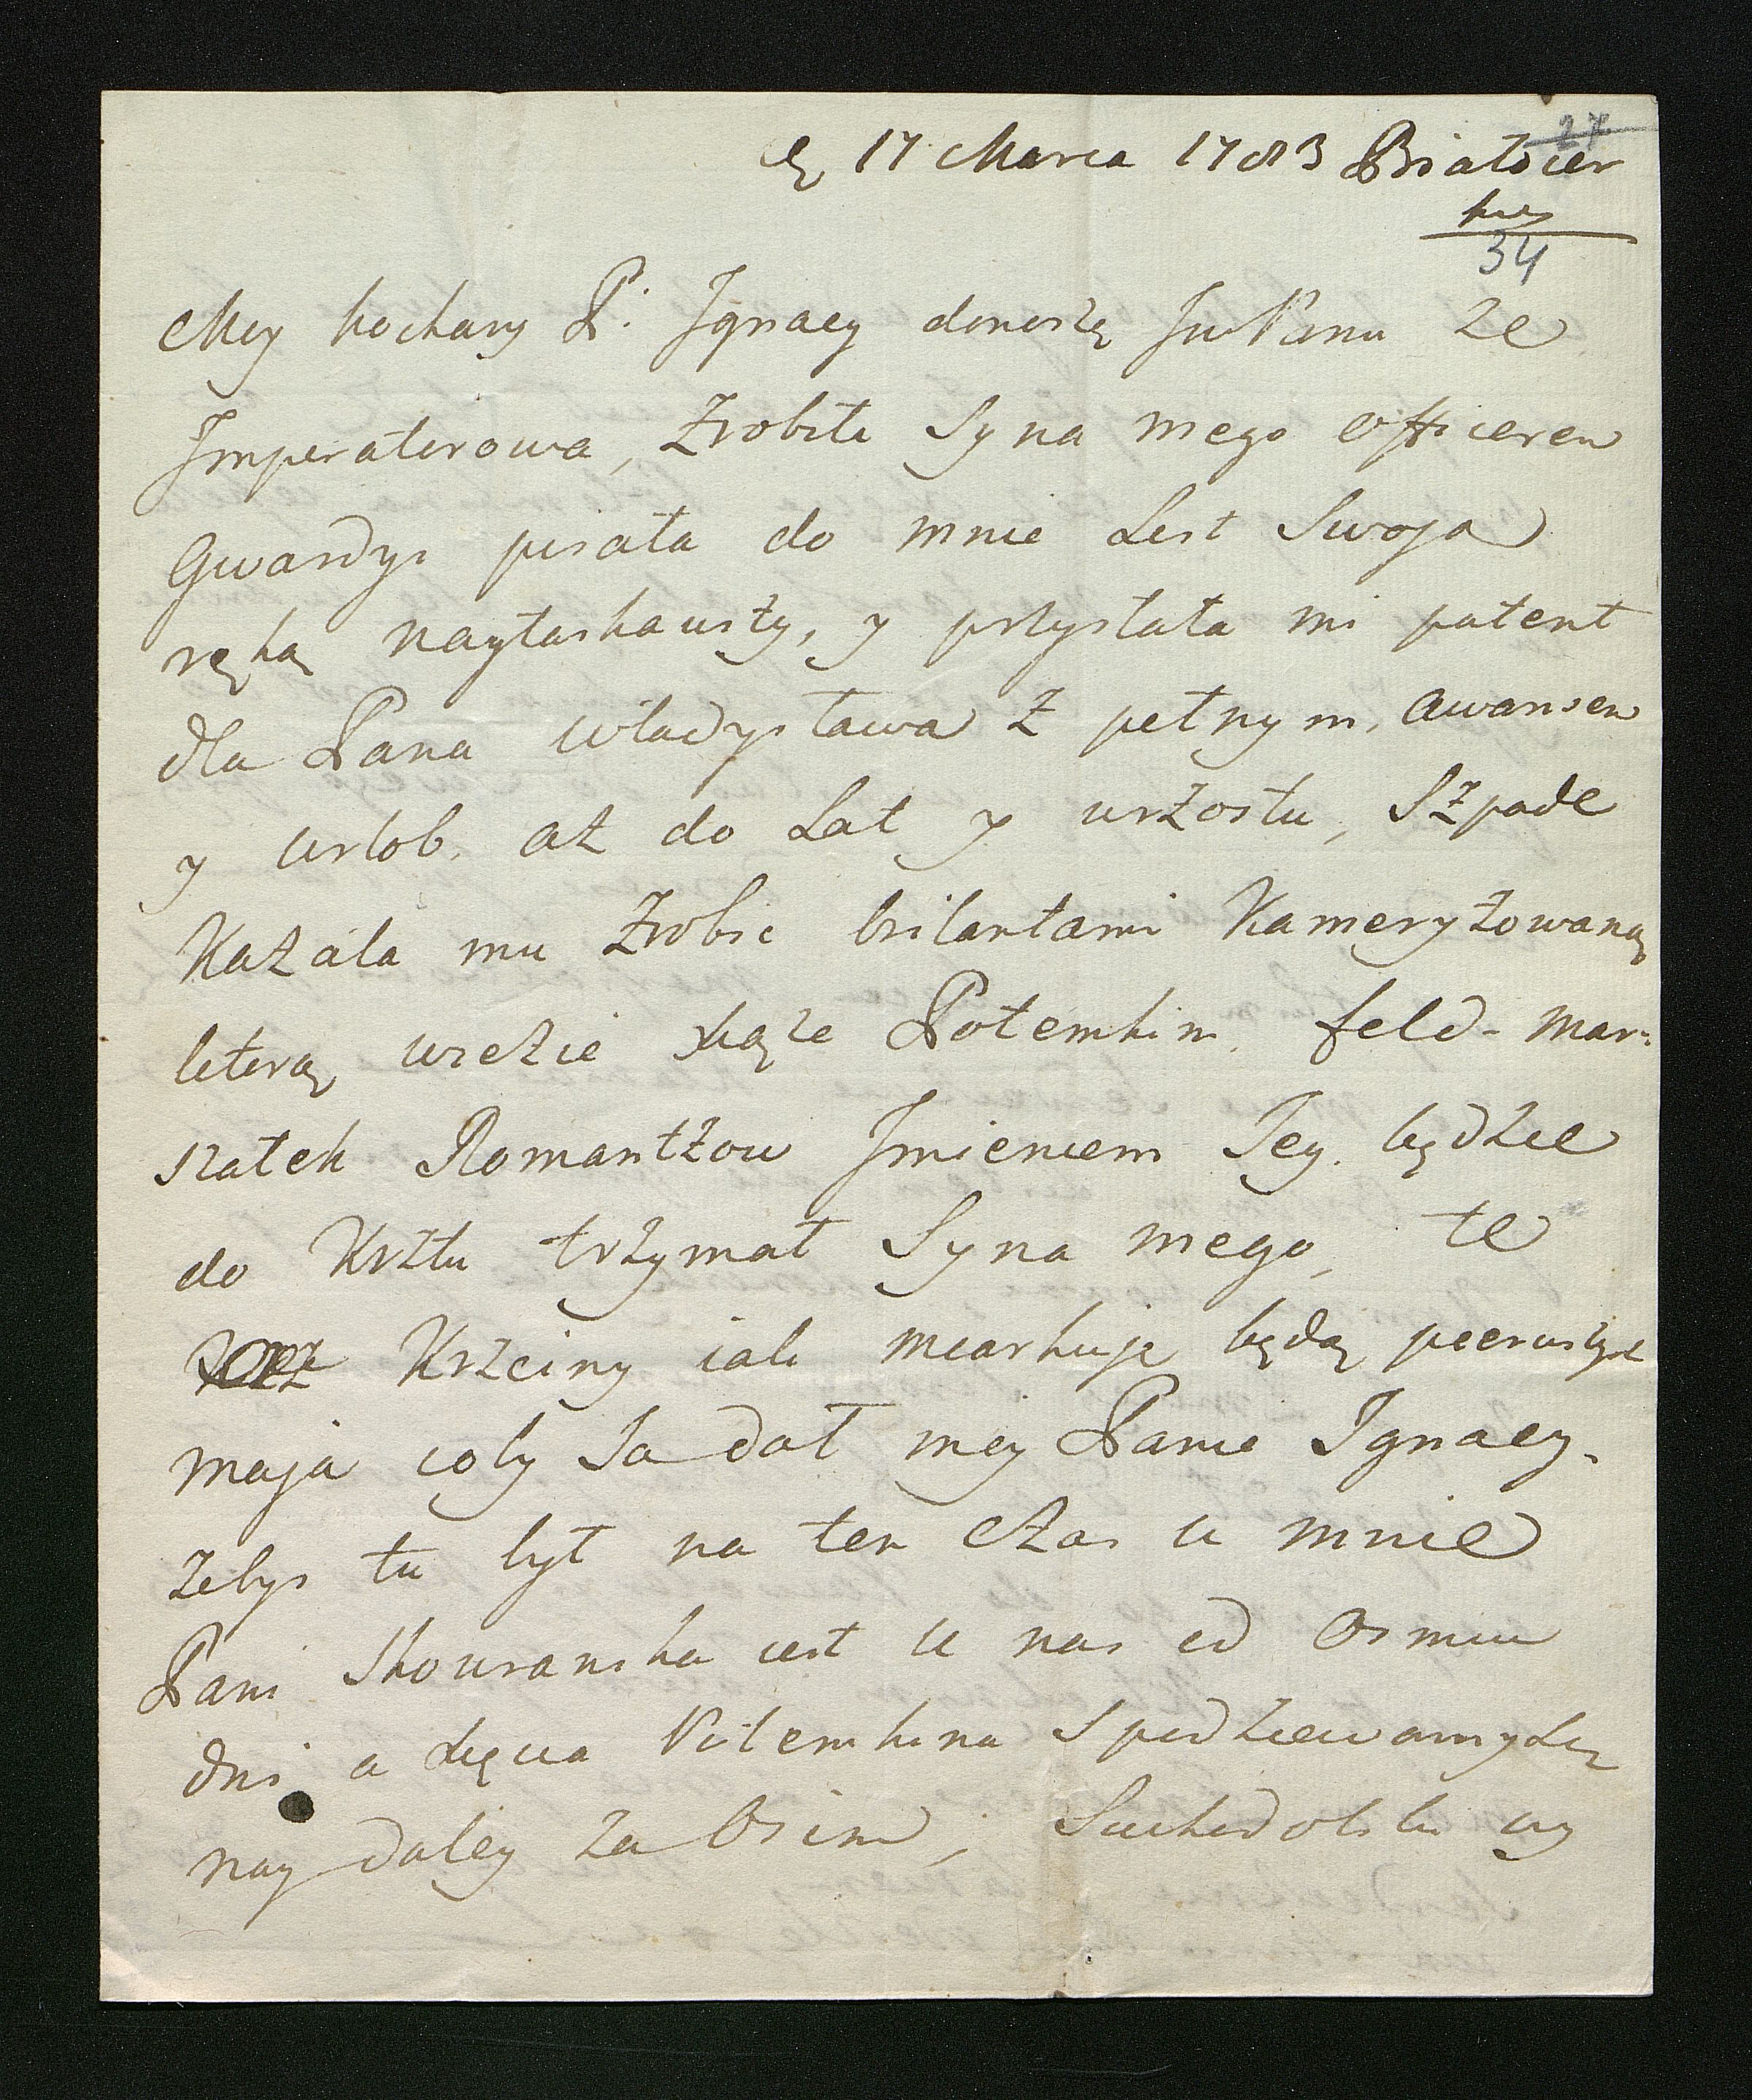 17 Marca 1783 Białocer
kwi
27
34
Moy kochany P: Jgnacy donoszę JwPanu że
Jmperatorowa, zrobiła Syna mego officerem
Gwardyi pisała do mnie List Swoją
ręką nayłaskawszy, y przysłała mi patent
dla Pana Władysława z pełnym, awansem
y urlob. aż do Lat y wrzostu, Szpade
Kazała mu zrobic brilantami Kameryzowaną
którą wiezie xiąże Potemkin. feld-mar:
szałek Romantzow Jmieniem Jey. będzie
do Krztu trzymał Syna mego, te
Krzciny iak miarkuje będą pierwszych
maja coby Ja dał moy Panie Ignacy.
żebys tu był na ten czas u mnie
Pani Skowronska iest u nas od Osmiu
dni a Xięcia Potemkina Spodziewamy Się
nay daley za Osim, Suchodolski czy